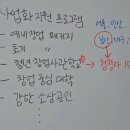 사업화 지원 프로그램
· 예비창업 패키지
· 초기 〃
· 청년 창업사관학교
· 창업 중심 대학
· 강한 소상공인
서울, 안산